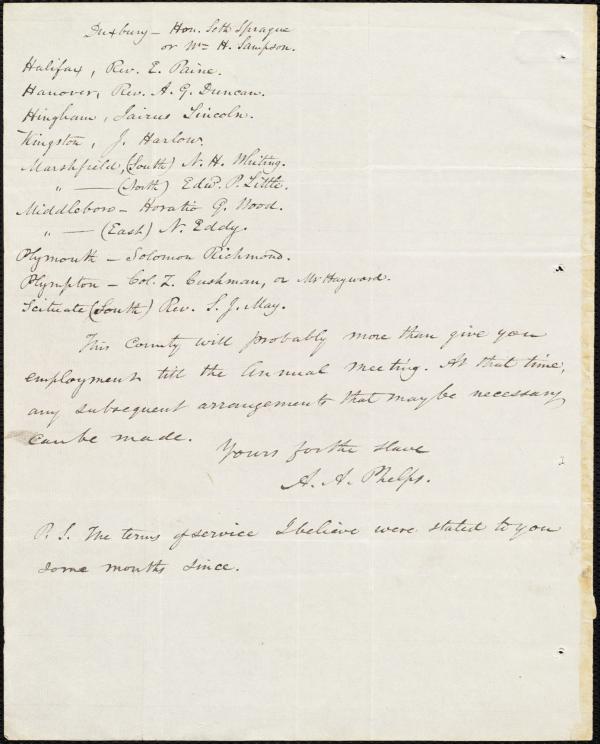 Duxbury — Hon. Seth Sprague
or Wm H. Sampson.
Halifax, Rev. E. Paine.
Hanover, Rev. A. G. Duncan.
Hingham, Jairus Lincoln.
Kingston, J. Harlow.
Marshfield, (South) N. H. Whiting.
" — (North) Edw. P. Little.
Middleboro — Horatio G. Wood.
" — (East) N. Eddy.
Plymouth — Solomon Richmond.
Plympton — Col. Z. Cushman, or Mr Hayward.
Scituate (South) Rev. S. J. May.
This County will probably more than give you
employment till the Annual meeting. At that time,
any subsequent arrangements that may be necessary
can be made.
Yours for the slave
A. A. Phelps.
P. S. The terms of service I believe were stated to you
some months since.